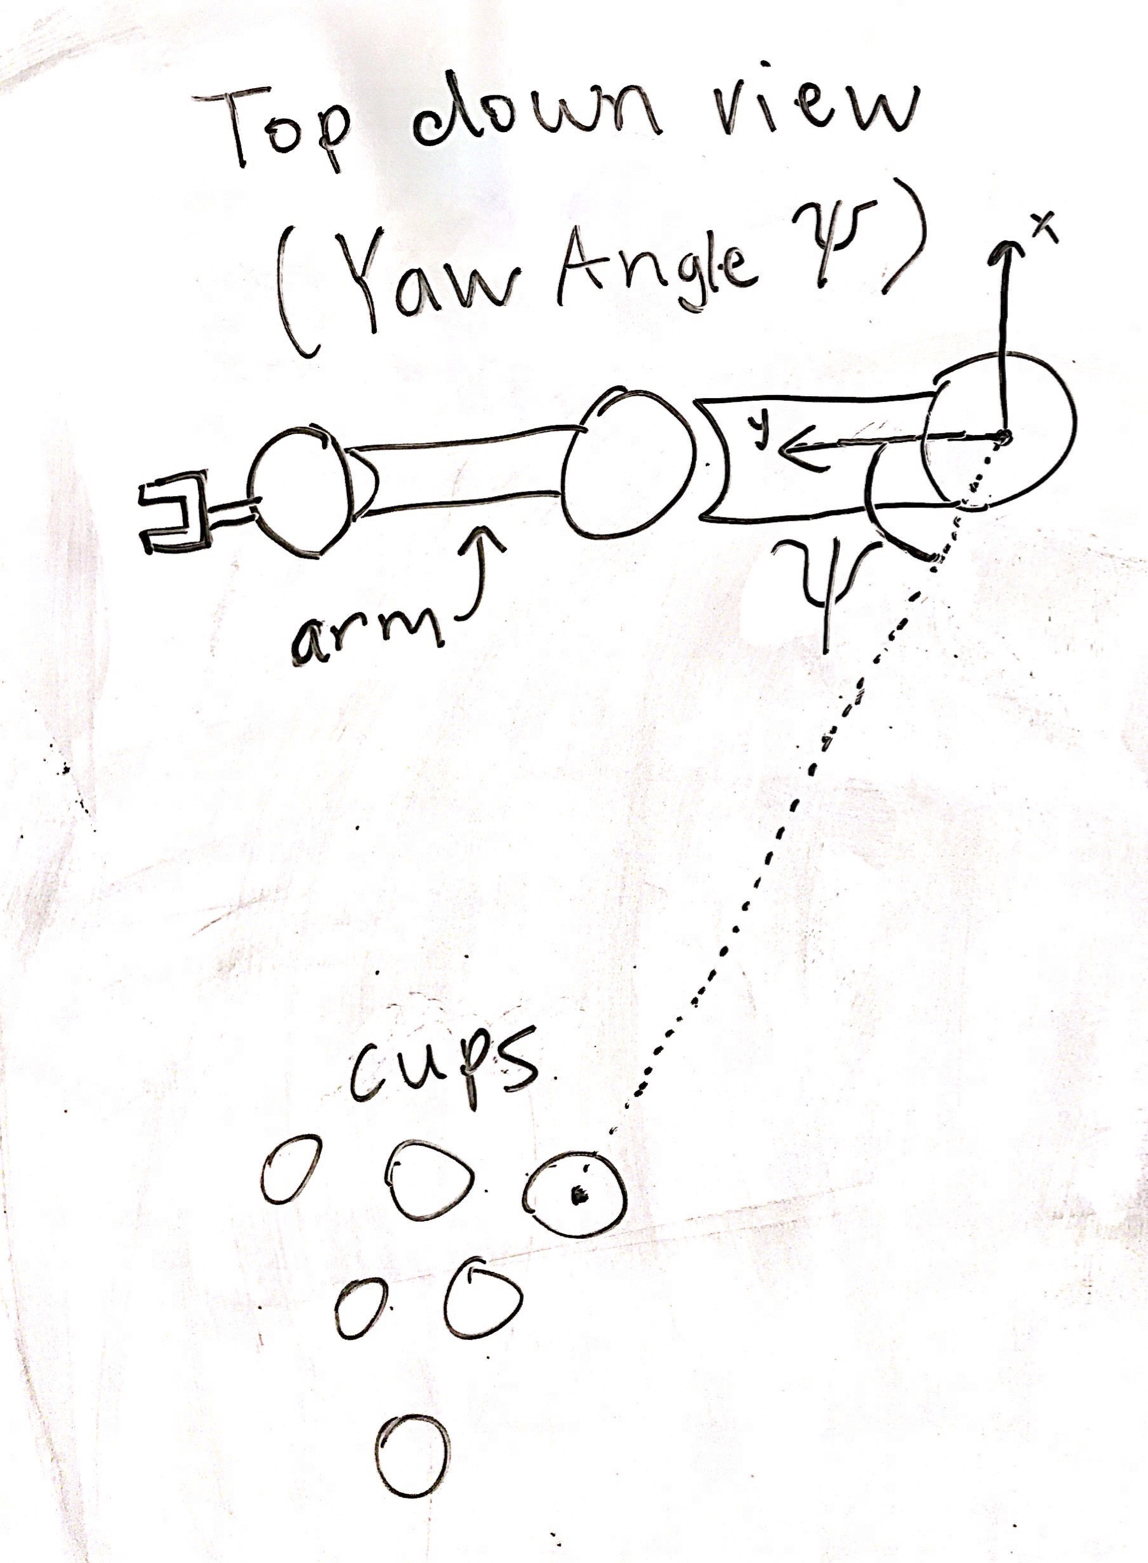 Top down view
(Yaw Angle Ψ)
x
y
Ψ
arm
cups